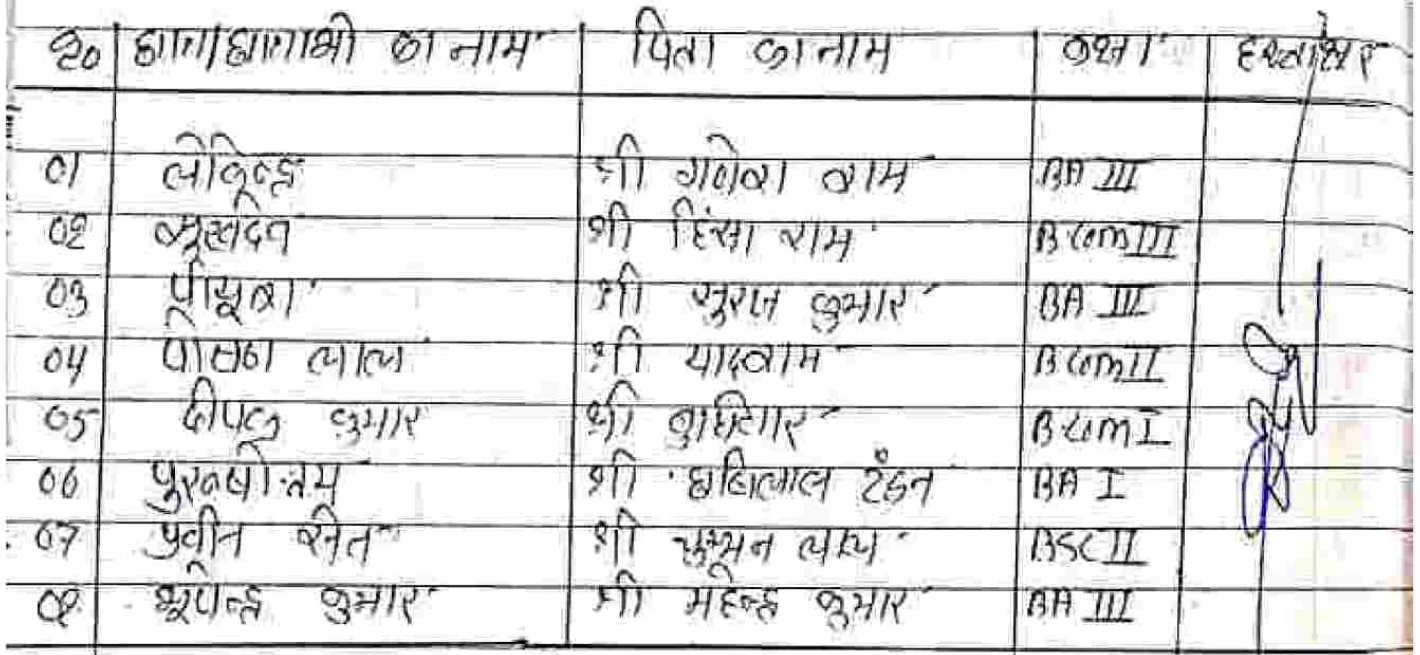 छात्र/छात्राओं का नाम पिता का नाम कक्षा हस्ताक्षर
01 श्री गणेश राम BA III
02 श्री हिंसा राम B.Com III
03 श्री सुरज कुमार BA III
04 लाल श्री यादराम B.Com II
05 दीपक कुमार श्री B.Com I
06 पुरुषोत्तम श्री छबिलाल टंडन BA I
07 प्रवीन श्री लाल BSC II
08 भूपेन्द्र कुमार श्री महेन्द्र कुमार BA III